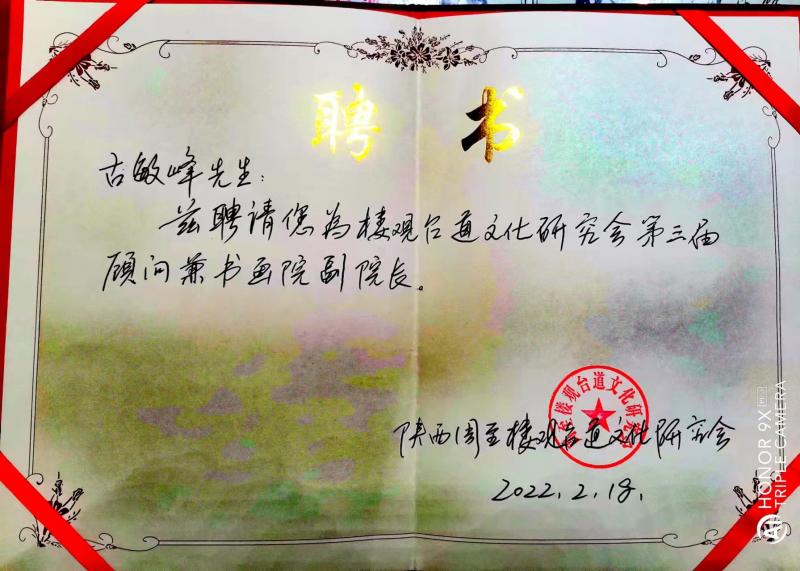 聘书
古敏峰先生:
兹聘请您为楼观台道文化研究会第三届
顾问兼书画院副院长。
楼观台道文化研究会
陕西周至楼观台道文化研究会
2022.2.18.
HONOR 9X
TRIPLE CAMERA